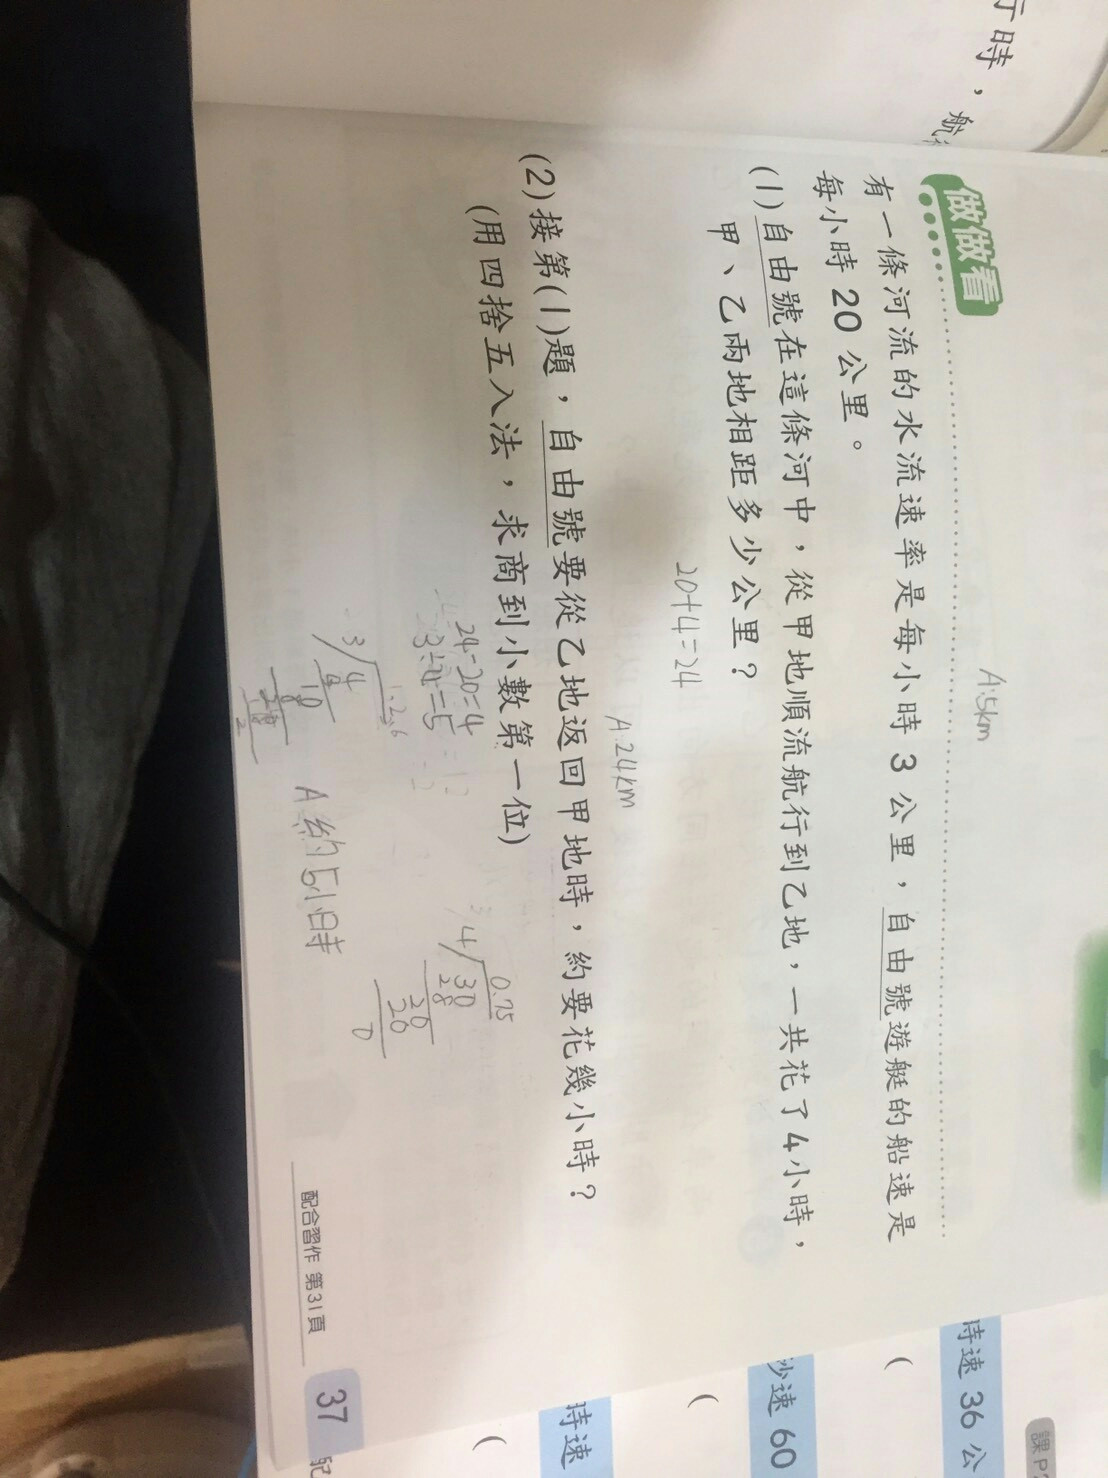 行時，航
做做看
A:5km
有一條河流的水流速率是每小時 3 公里，自由號遊艇的船速是
每小時 20 公里。
(1)自由號在這條河中，從甲地順流航行到乙地，一共花了4小時，
甲、乙兩地相距多少公里？
20+4=24
A:24km
(2)接第(1)題，自由號要從乙地返回甲地時，約要花幾小時？
(用四捨五入法，求商到小數第一位)
24-20=4
0.75
4
30
28
20
20
0
3
4
10
A 約5小時
配合習作 第31頁
37
時速 36 公
(
秒速 60
(
時速
(
課P
配